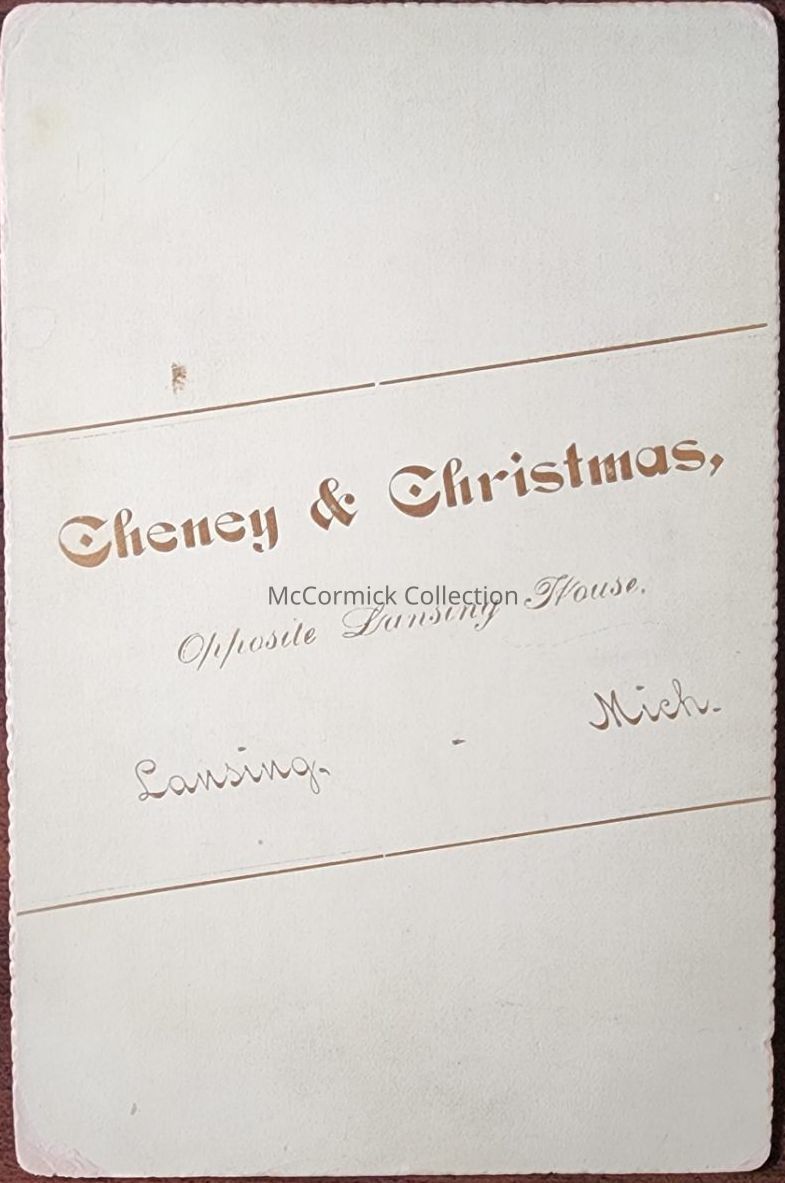 Cheney & Christmas,
McCormick Collection
Opposite Lansing House.
Lansing. - Mich.